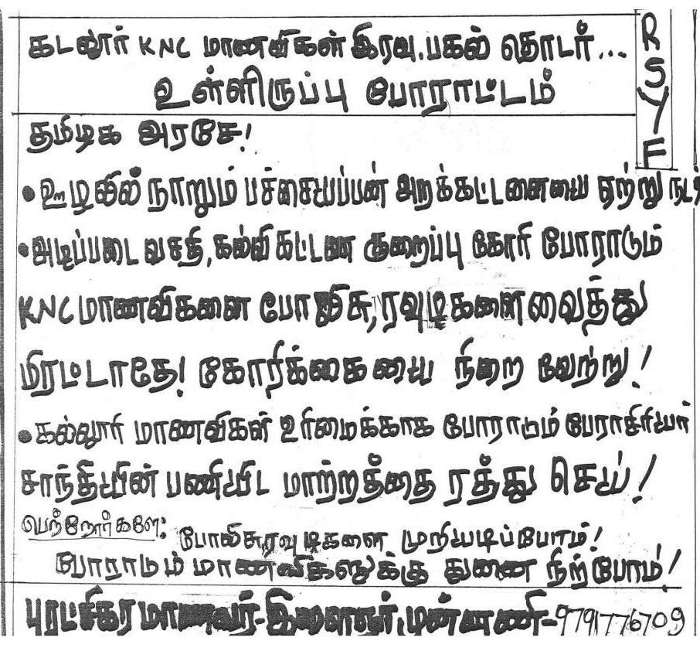 கடலூர் KNC மாணவிகள் இரவு.பகல் தொடர்...
உள்ளிருப்பு போராட்டம்
RSYF
தமிழக அரசே!
• ஊழலில் நாறும் பச்சையப்பன் அறக்கட்டளையை ஏற்று நட
• அடிப்படை வசதி, கல்வி கட்டண குறைப்பு கோரி போராடும்
KNC மாணவிகளை போலிசு, ரவுடிகளைவைத்து
மிரட்டாதே! கோரிக்கையை நிறைவேற்று!
• கல்லூரி மாணவிகள் உரிமைக்காக போராடும் பேராசிரியர்
சாந்தியின் பணியிட மாற்றத்தை ரத்து செய்!
பெற்றோர்களே: போலிசுரவுடிகளை முறியடிப்போம்!
போராடும் மாணவிகளுக்கு துணை நிற்போம்!
புரட்சிகர மாணவர்-இளைஞர் முன்னணி-9791776709